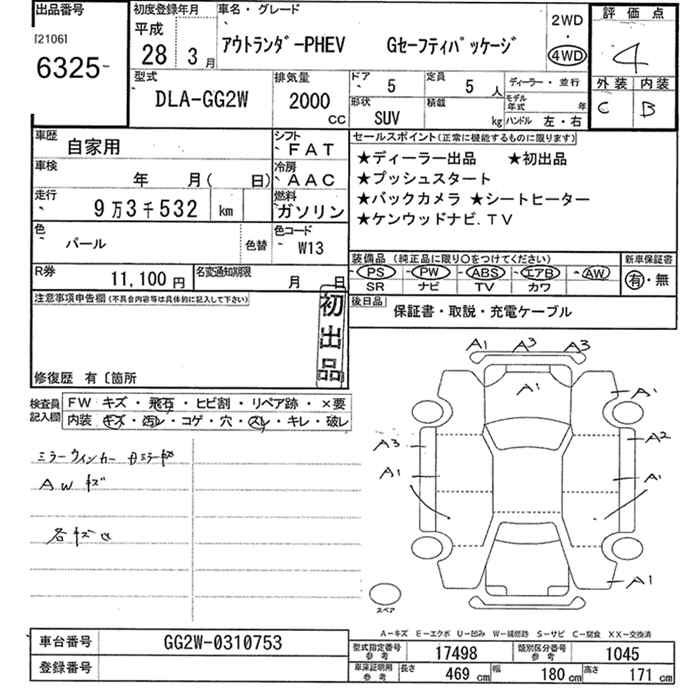 出品番号
[2106]
6325
初度登録年月
平成
28 3月
車名・グレード
アウトランダｰPHEV Gセーフティパッケージ
2WD
・
4WD
評価点
4
外装 内装
C B
型式
DLA-GG2W
排気量
2000
CC
ドア 5
定員 5 人
ディーラー・並行
形状
SUV
積載 kg
モデル
年式 年
ハンドル 左・右
車歴
自家用
車検
年 月( 日)
走行
9万3千532 km
色
パール
色替
シフト
FAT
冷房
AAC
燃料
ガソリン
色コード
W13
セールスポイント(正常に機能するものに限ります)
★ディーラー出品 ★初出品
★プッシュスタート
★バックカメラ ★シートヒーター
★ケンウッドナビ.TV
R券
11,100円
名変通知期限
月 日
装備品(純正品に限り○をつけてください)
PS PW ABS エアB AW
SR ナビ TV カワ
新車保証書
有・無
後日品
保証書・取説・充電ケーブル
注意事項申告欄(不具合内容等は具体的に記入して下さい)
初出品
修復歴 有〔箇所
検査員
記入欄
FW キズ・飛石・ヒビ割・リペア跡・×要
内装 キズ・汚レ・コゲ・穴・スレ・キレ・破レ
ミラーウインカー
AW キズ
各キズ
A1 A3 A3
A1
A1
A3
A2
A1
A1
A1
スペア
A―キズ E―エクボ U―凹み W―補修跡 S―サビ C―腐食 XX―交換済
車台番号
GG2W-0310753
登録番号
型式指定番号
参考
17498
類別区分番号
参考
1045
車庫証明用
参考
長さ 469 cm
幅 180 cm
高さ 171 cm